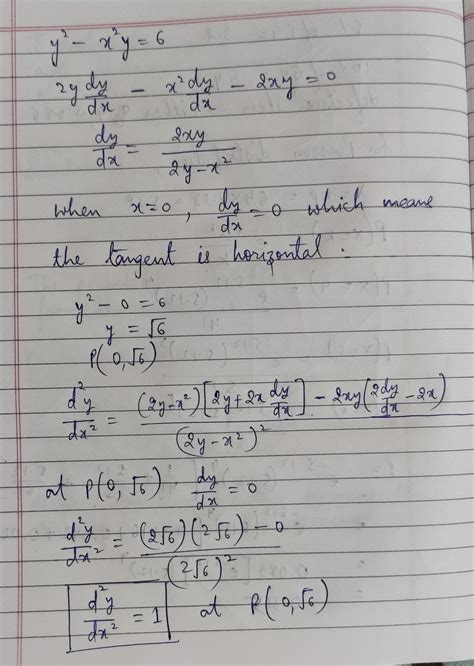 y² - x²y = 6
2y dy/dx - x² dy/dx - 2xy = 0
dy/dx = 2xy / (2y - x²)
when x=0, dy/dx = 0 which means
the tangent is horizontal.
y² - 0 = 6
y = √6
P(0, √6)
d²y/dx² = (2y-x²)[2y+2x dy/dx] - 2xy(2dy/dx - 2x) / (2y-x²)²
at P(0, √6), dy/dx = 0
d²y/dx² = (2√6)(2√6) - 0 / (2√6)²
d²y/dx² = 1 at P(0, √6)